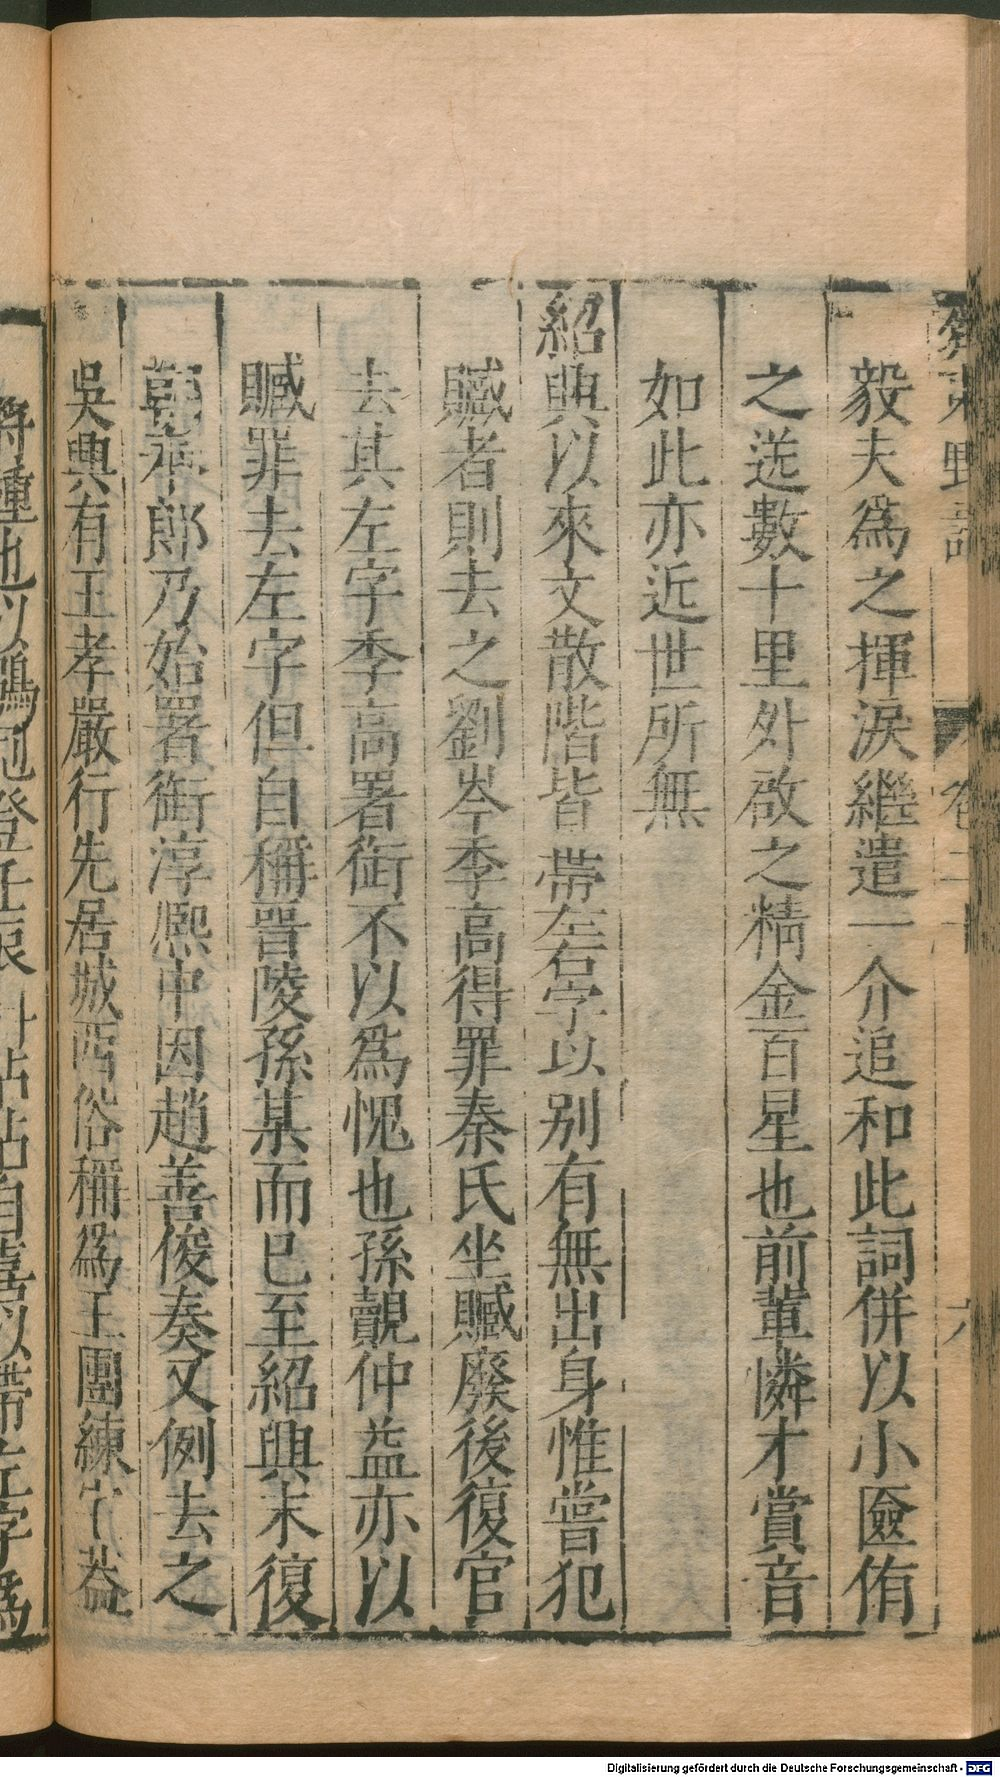 齊東野語 卷二十 六
毅夫爲之揮淚繼遣一介追和此詞併以小匳侑
之送數十里外啟之精金百星也前輩憐才賞音
如此亦近世所無
紹興以來文散階皆帶左右字以別有無出身惟嘗犯
贓者則去之劉岑季高得罪秦氏坐贓廢後復官
去其左字季高署銜不以爲愧也孫覿仲益亦以
贓罪去左字但自稱晋陵孫某而已至紹興末復
朝奉郎乃始署銜淳熈中因趙善俊奏又例去之
吳興有王孝嚴行先居城西俗稱爲王團練宅葢
將種也以鶡冠登壬辰科沾沾自喜以帶左字爲
Digitalisierung gefördert durch die Deutsche Forschungsgemeinschaft - DFG